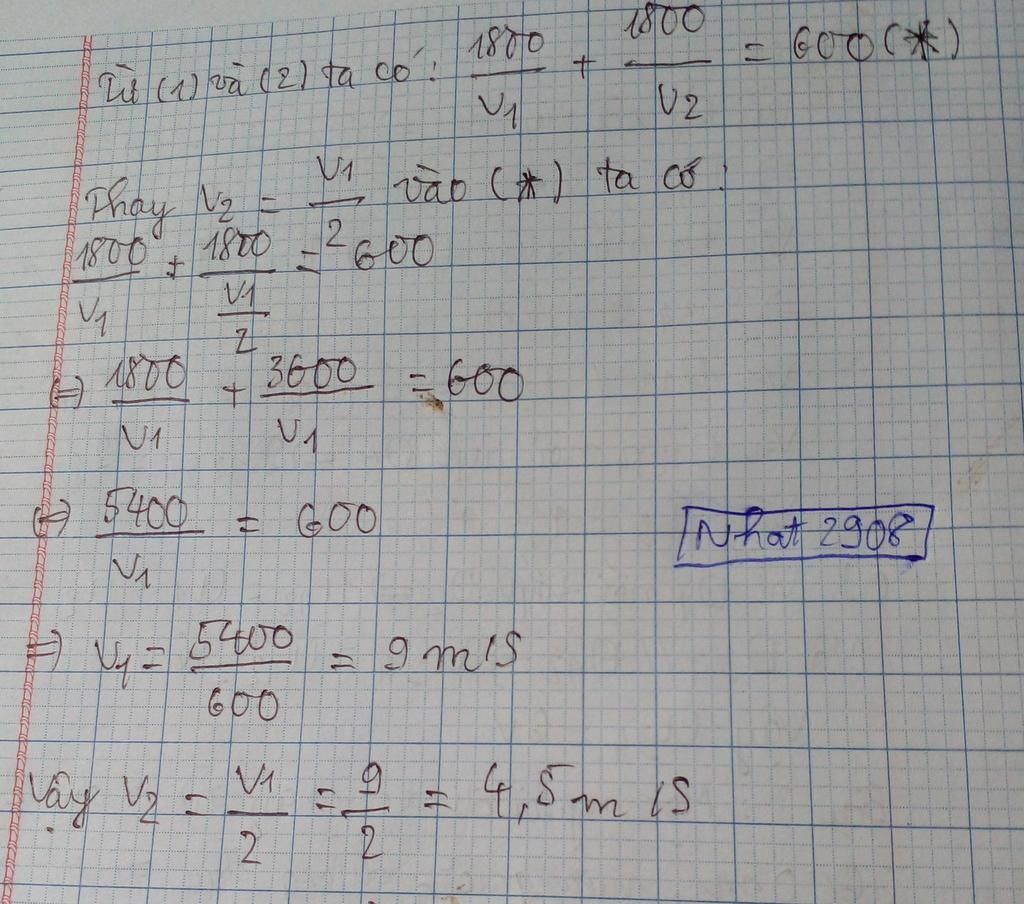 Từ (1) và (2) ta có: 1800/V1 + 1800/V2 = 600 (*)
Thay V2 = V1/2 vào (*) ta có:
1800/V1 + 1800/(V1/2) = 600
⇔ 1800/V1 + 3600/V1 = 600
⇔ 5400/V1 = 600
Nhat 2908
⇒ V1 = 5400/600 = 9 m/s
Vậy V2 = V1/2 = 9/2 = 4,5 m/s